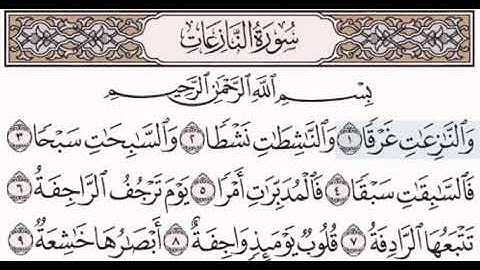 سُورَةُ النَّازِعَاتِ
بِسْمِ ٱللَّهِ ٱلرَّحْمَٰنِ ٱلرَّحِيمِ
وَٱلنَّٰزِعَٰتِ غَرْقًا ١ وَٱلنَّٰشِطَٰتِ نَشْطًا ٢ وَٱلسَّٰبِحَٰتِ سَبْحًا ٣
فَٱلسَّٰبِقَٰتِ سَبْقًا ٤ فَٱلْمُدَبِّرَٰتِ أَمْرًا ٥ يَوْمَ تَرْجُفُ ٱلرَّاجِفَةُ ٦
تَتْبَعُهَا ٱلرَّادِفَةُ ٧ قُلُوبٌ يَوْمَئِذٍ وَاجِفَةٌ ٨ أَبْصَٰرُهَا خَٰشِعَةٌ ٩